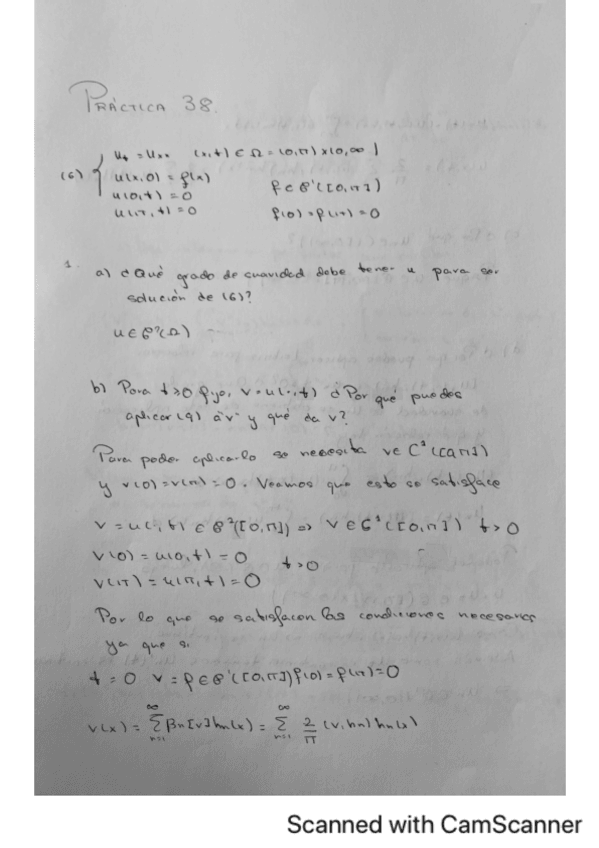 PRÁCTICA 38.
(6) { ut = uxx (x,t) ∈ Ω = (0,π) x (0,∞)
u(x,0) = f(x)
u(0,t) = 0 f ∈ C¹([0,π])
u(π,t) = 0 f(0) = f(π) = 0
1. a) ¿Qué grado de suavidad debe tener u para ser
solución de (6)?
u ∈ C²(Ω)
b) Para t≥0 fijo, v = u(·,t) ¿Por qué puedes
aplicar (9) a v y qué da v?
Para poder aplicarlo se necesita v ∈ C¹([0,π])
y v(0) = v(π) = 0. Veamos que esto se satisface
v = u(·,t) ∈ C²([0,π]) => v ∈ C¹([0,π]) t > 0
v(0) = u(0,t) = 0
t > 0
v(π) = u(π,t) = 0
Por lo que se satisfacen las condiciones necesarias
ya que si
t = 0 v = f ∈ C¹([0,π]) f(0) = f(π) = 0
v(x) = ∞∑n=1 βn[v] hn(x) = ∞∑n=1 2/π (v, hn) hn(x)
Scanned with CamScanner